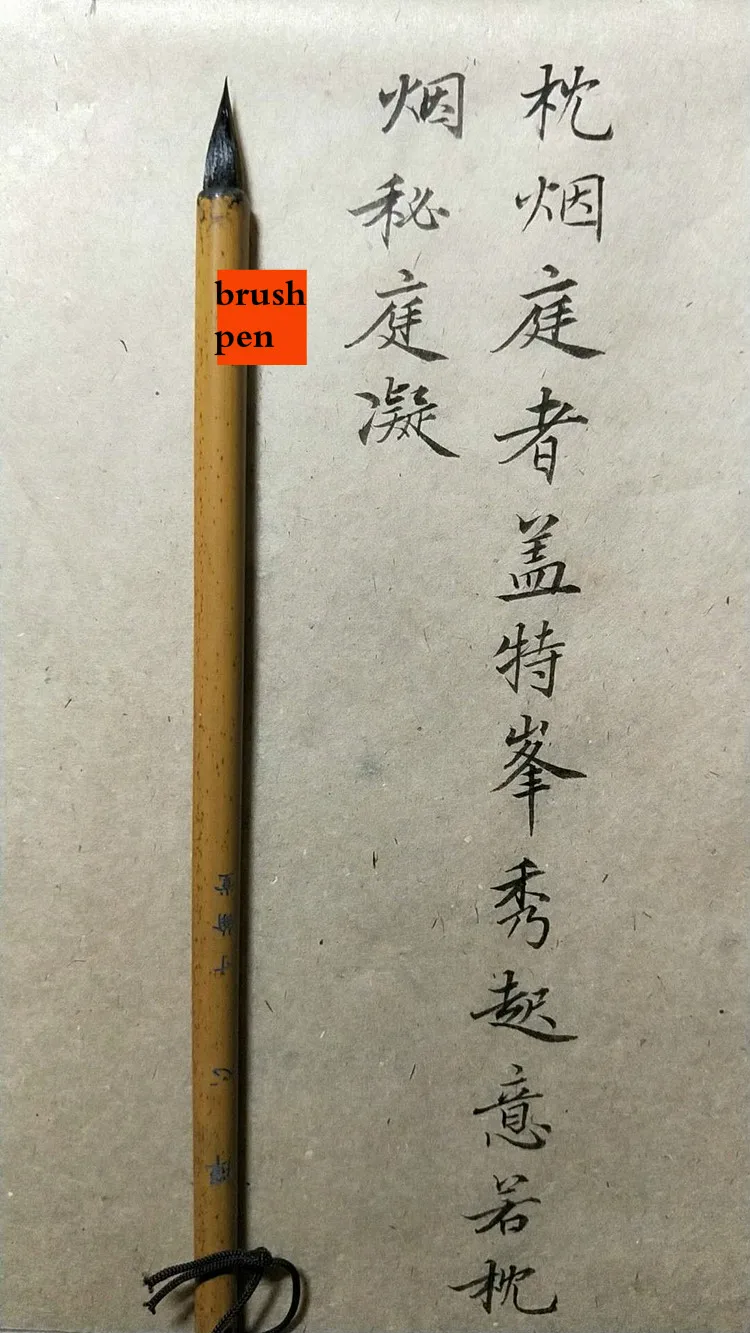 枕烟庭者盖特峯秀起意若枕
烟秘庭凝
brush
pen